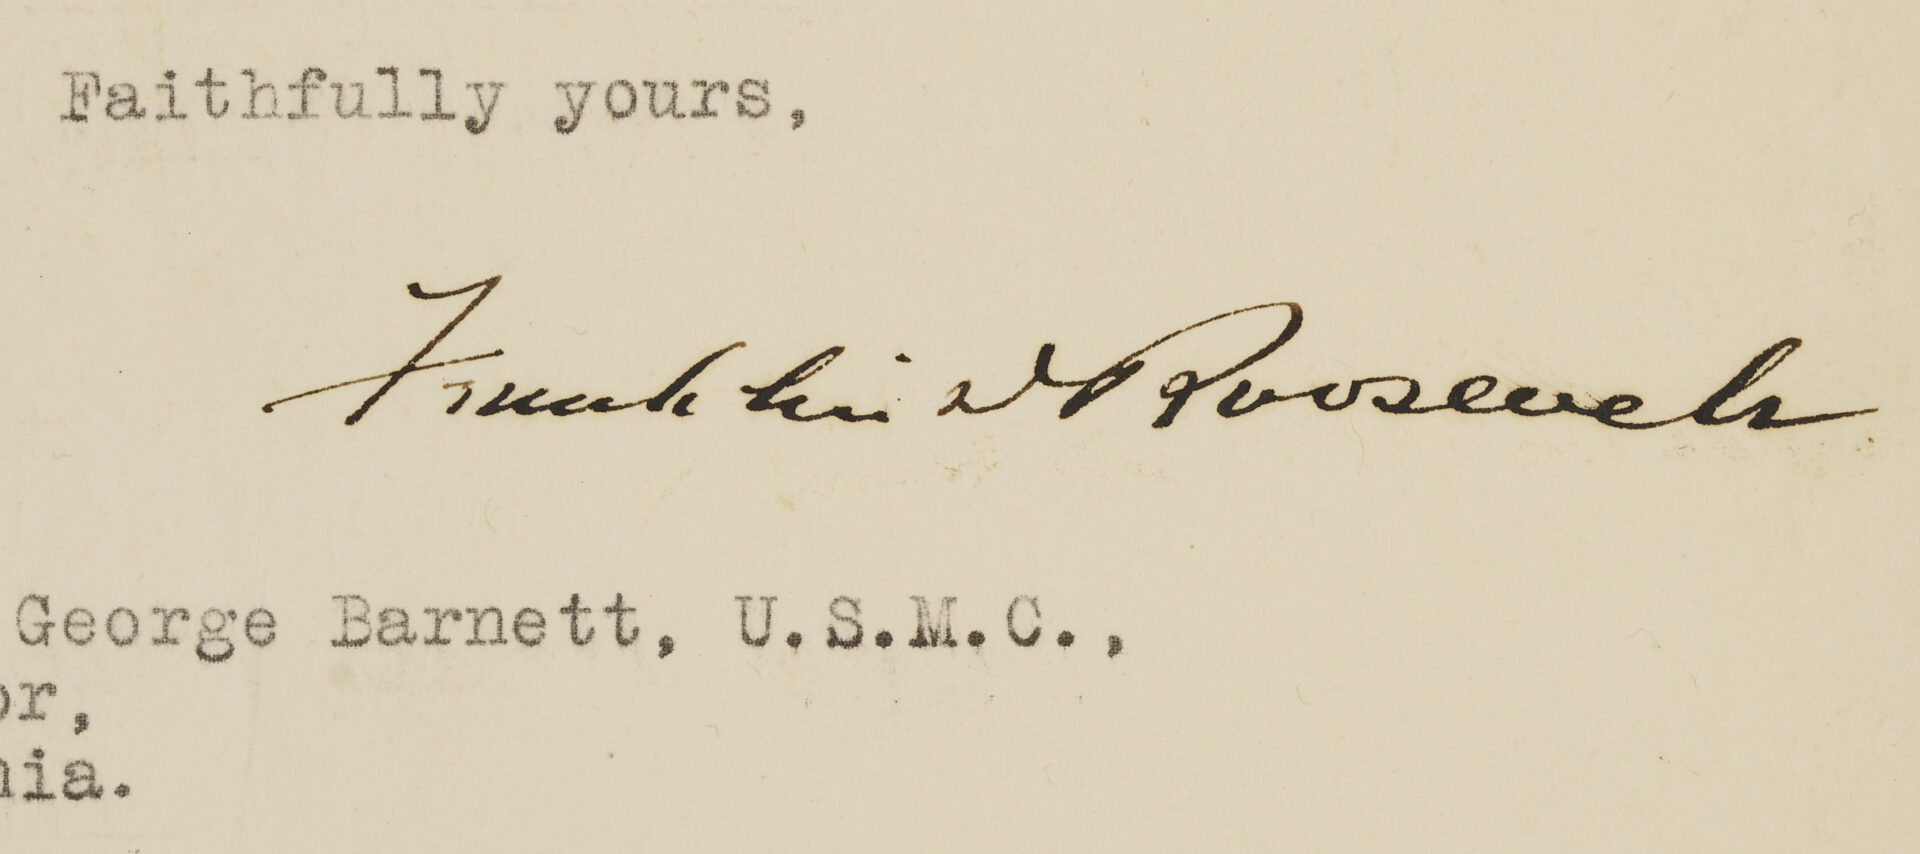 Faithfully yours,
Franklin D Roosevelt
George Barnett, U.S.M.C.,
or,
nia.